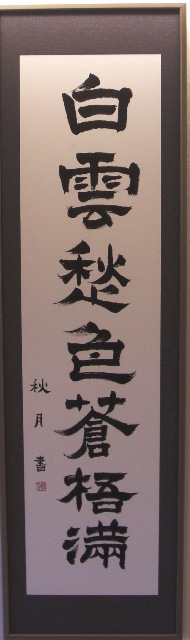 白雲愁色蒼梧満
秋月書